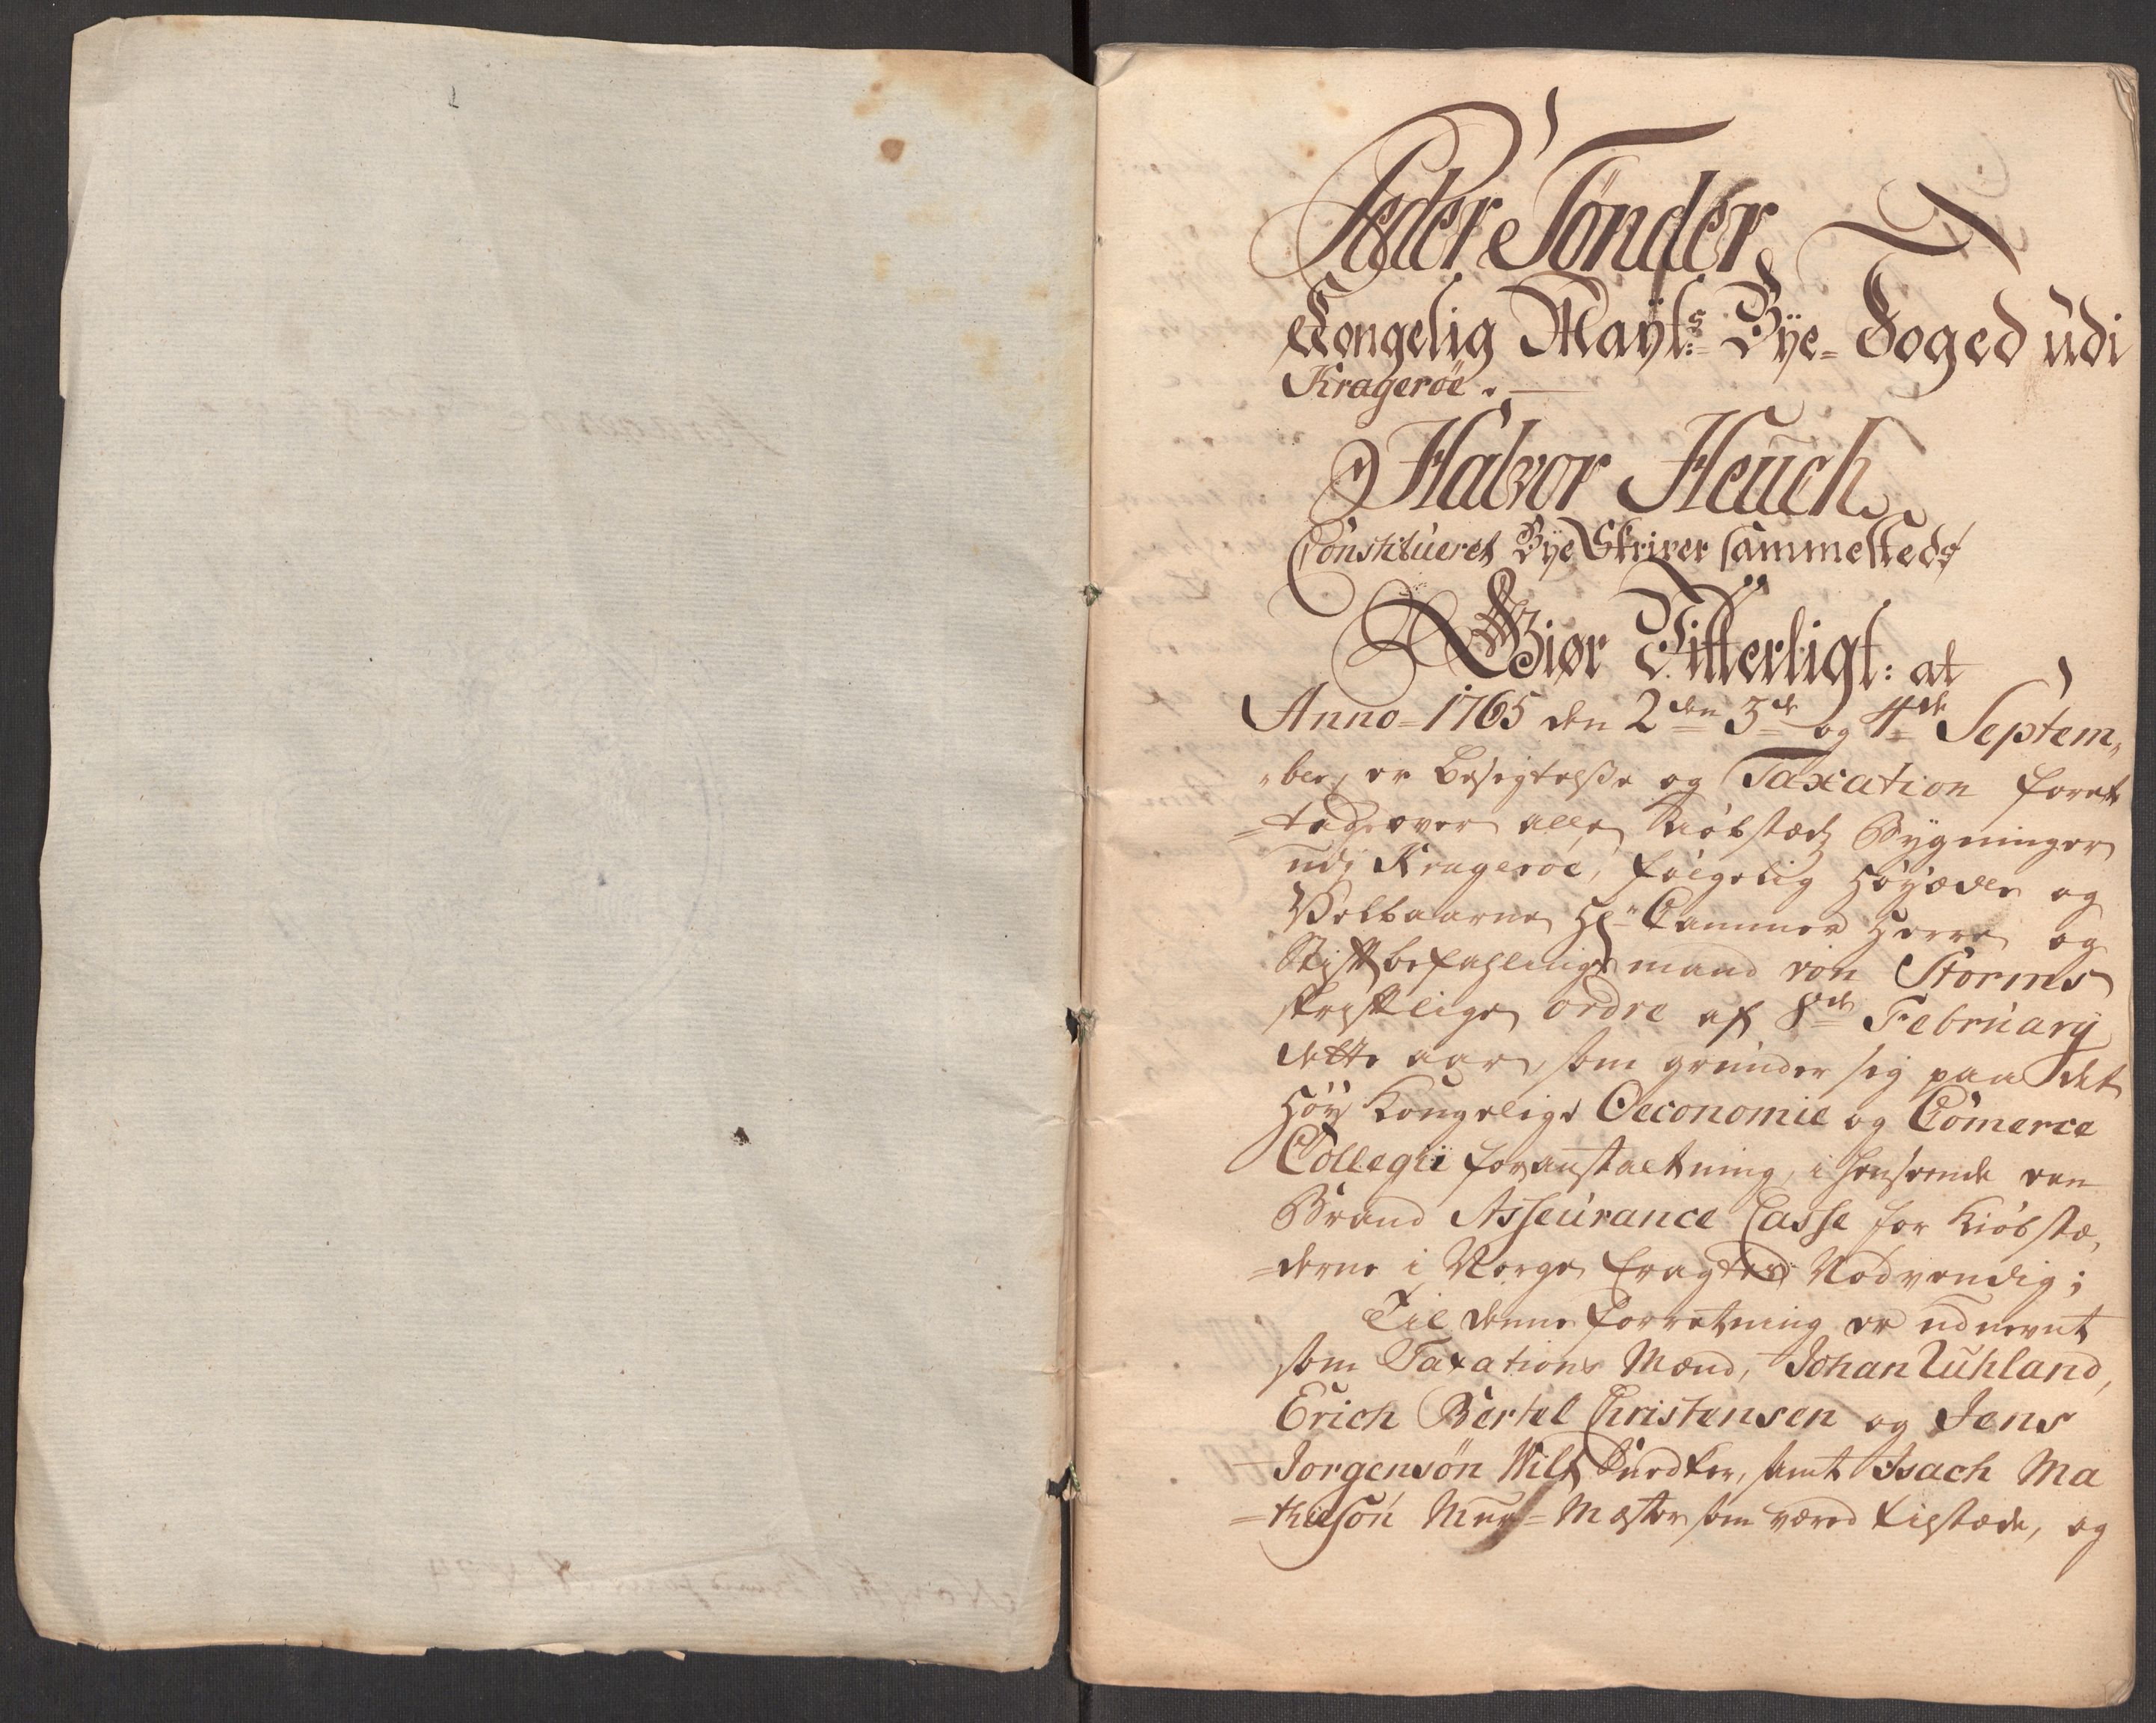 Peder Tønder
Kongelig Mayts: Bÿe-Foged udi
Kragerøe.
Halvor Heuch
Constitueret Bÿe Skriver sammesteds
Giør Vitterligt: at
Anno-1765 den 2den 3de og 4de Septem„
„ber, er Besigtelse og Taxation foret
=tagen over alle Kiøbstæds Bygninger
udi Kragerøe, følgelig Høyædle og
Velbaarne Hr: Cammer Herre og
Stiftbefahlingsmand von Storms
skriftlige ordre af 8de February
dette aar, som grunder sig paa det
Høy Kongelige Oeconomie og Comerce
Collegii foranstaltning, i henseende en
Brand Asseurance Casse for Kiøbstæ„
=derne i Norge Eragted Nødvendig;
Til denne forretning er udnevnt
som Taxations Mænd, Johan Uhland,
Erich Bertel Christensen og Jens
Jorgensön Wilt Snedker, samt Isach Ma
=thiesön Muur-Mester som vared tilstæde, og